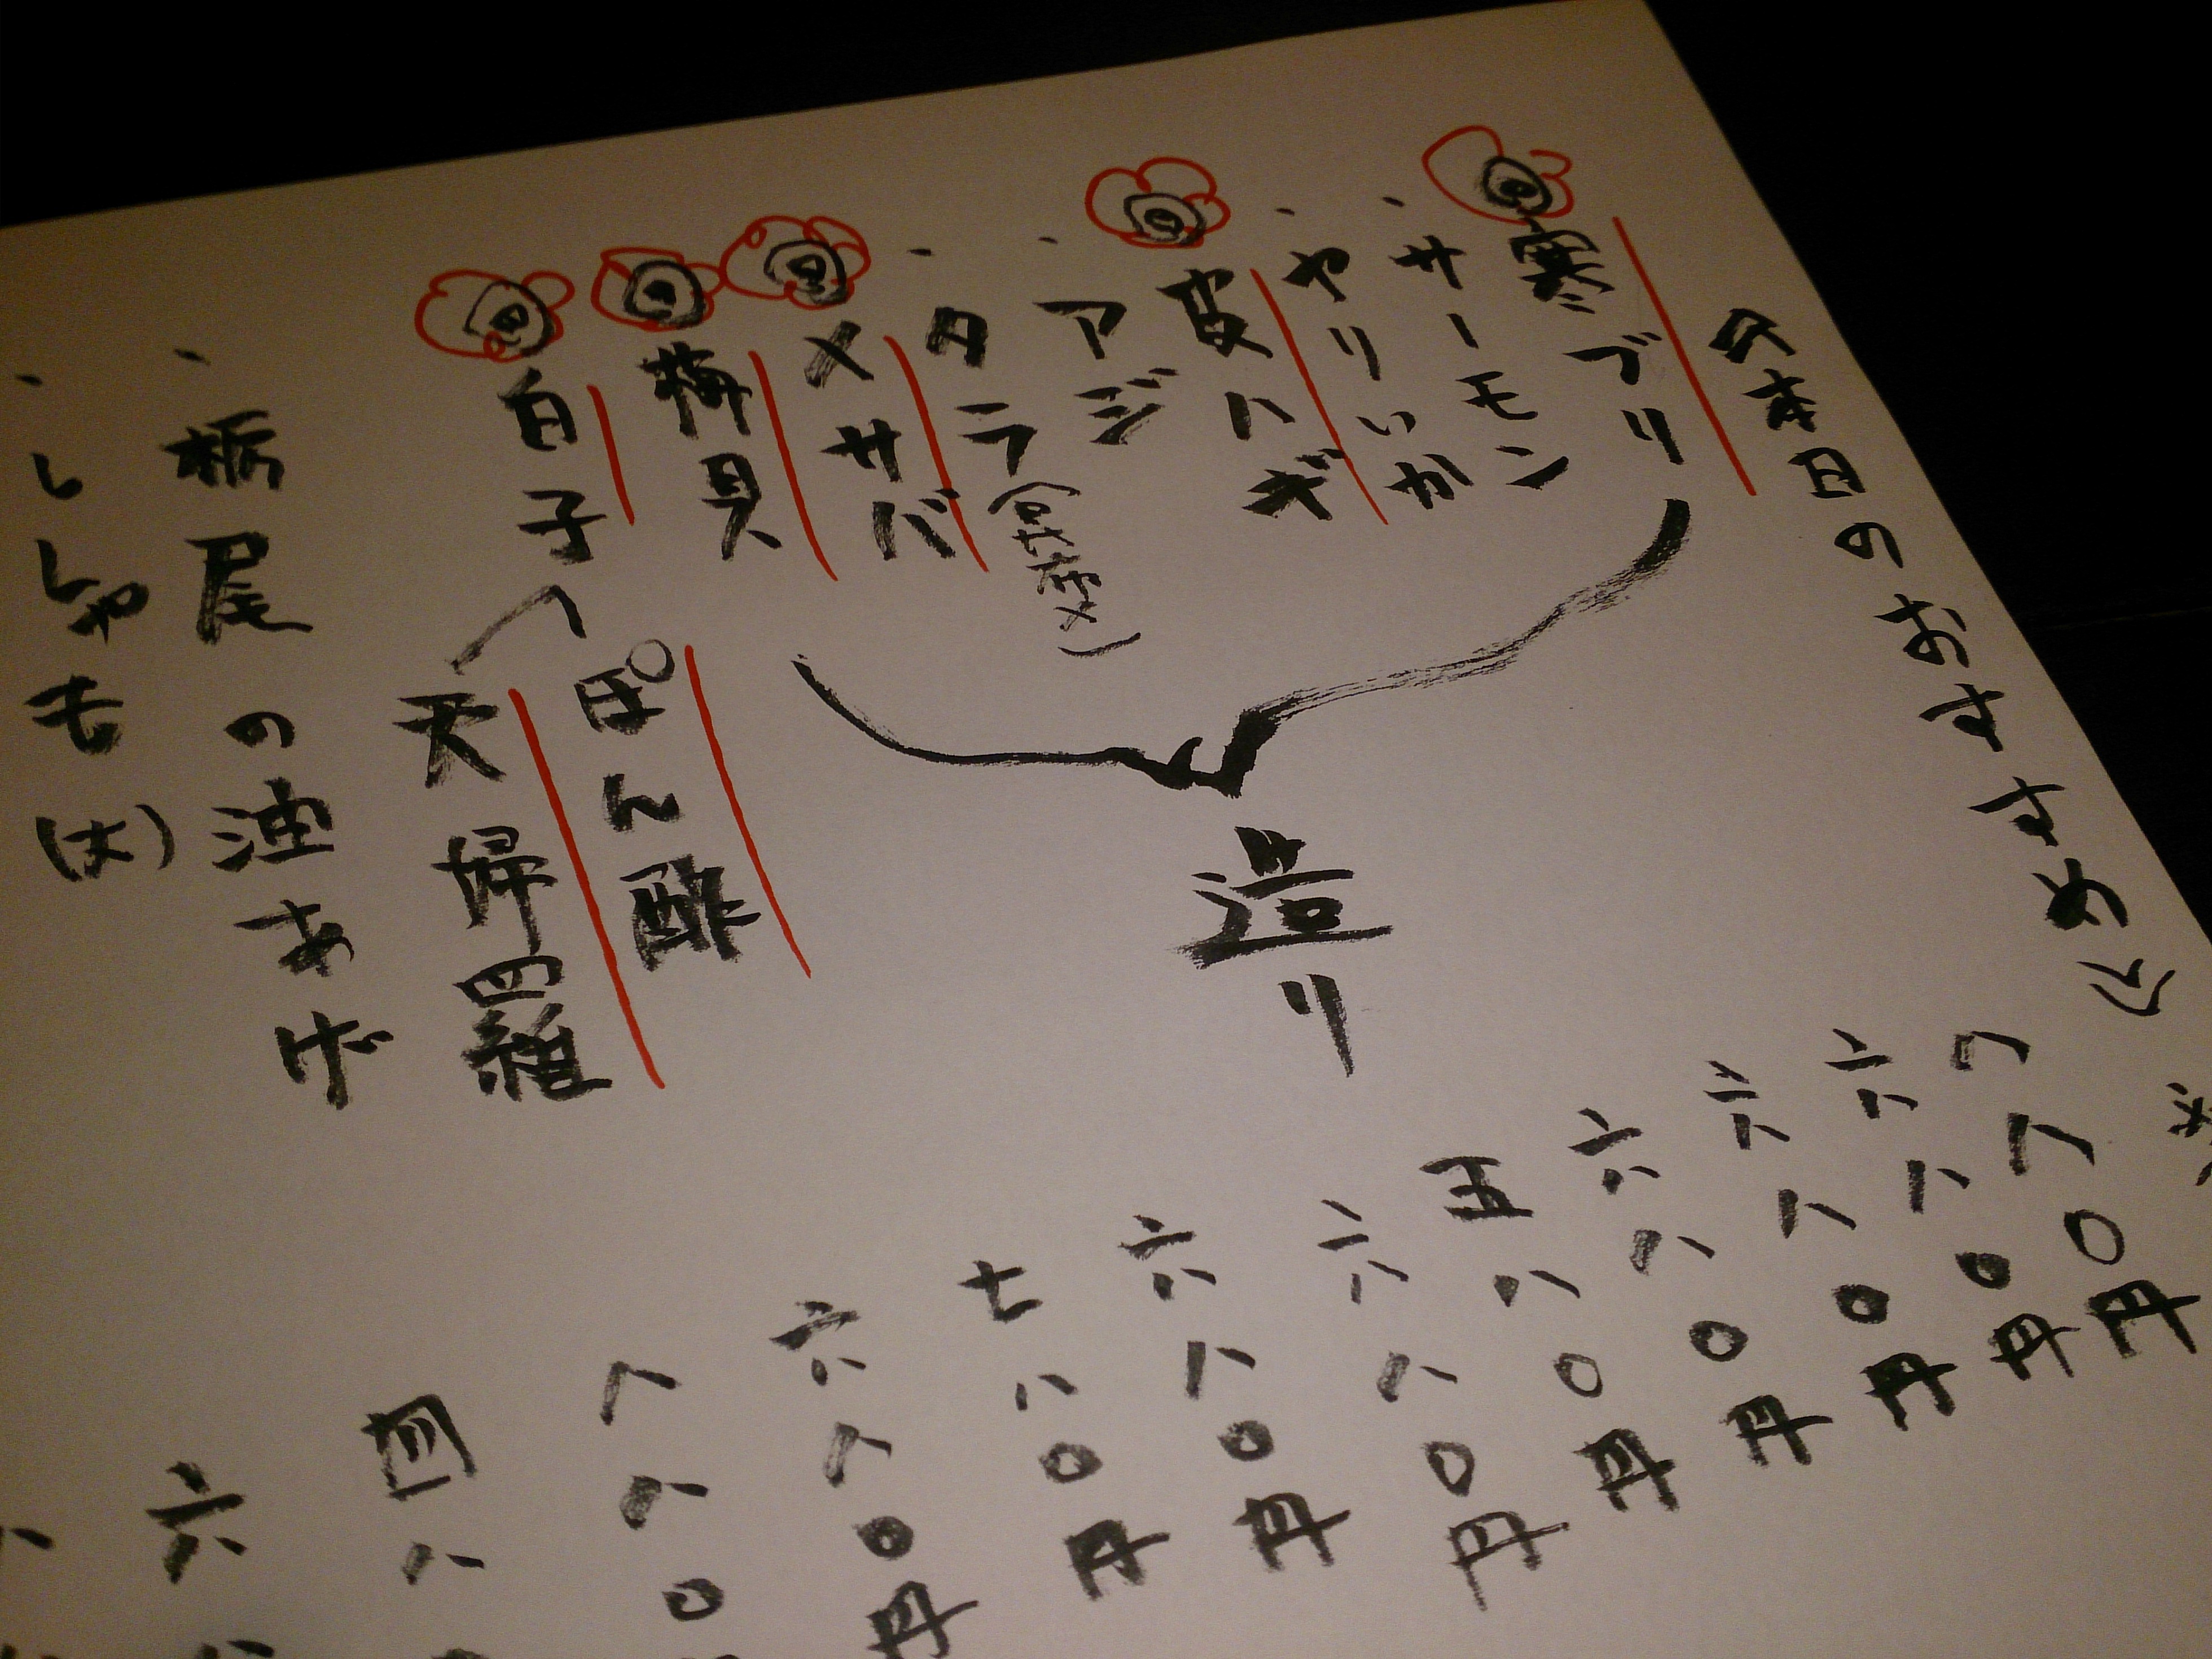 本日のおすすめ
寒ブリ
サーモン
ヤリいか
皮ハギ
アジ
タラ(昆布〆)
〆サバ
造り
梅貝
白子
ぽん酢
天婦羅
栃尾の油あげ
ししゃも(大)
八八〇円
六八〇円
六八〇円
六八〇円
五八〇円
六八〇円
六八〇円
七八〇円
六八〇円
八八〇
四八
六